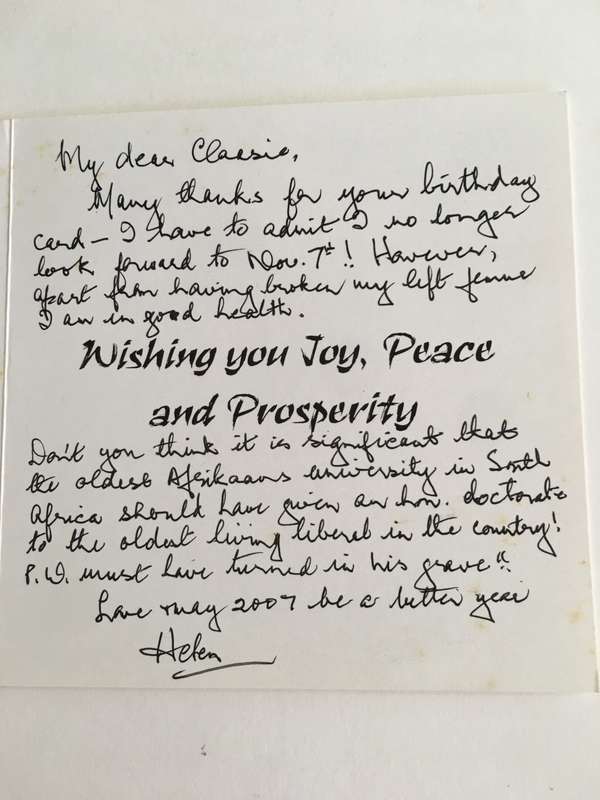 My dear Classie,
Many thanks for your birthday
card – I have to admit I no longer
look forward to Nov. 7th! However,
apart from having broken my left femur
I am in good health.
Wishing you Joy, Peace
and Prosperity
Don't you think it is significant that
the oldest Afrikaans university in South
Africa should have given an hon. doctorate
to the oldest living liberal in the country!
P.W. must have turned in his grave!!
Love & may 2007 be a better year
Helen